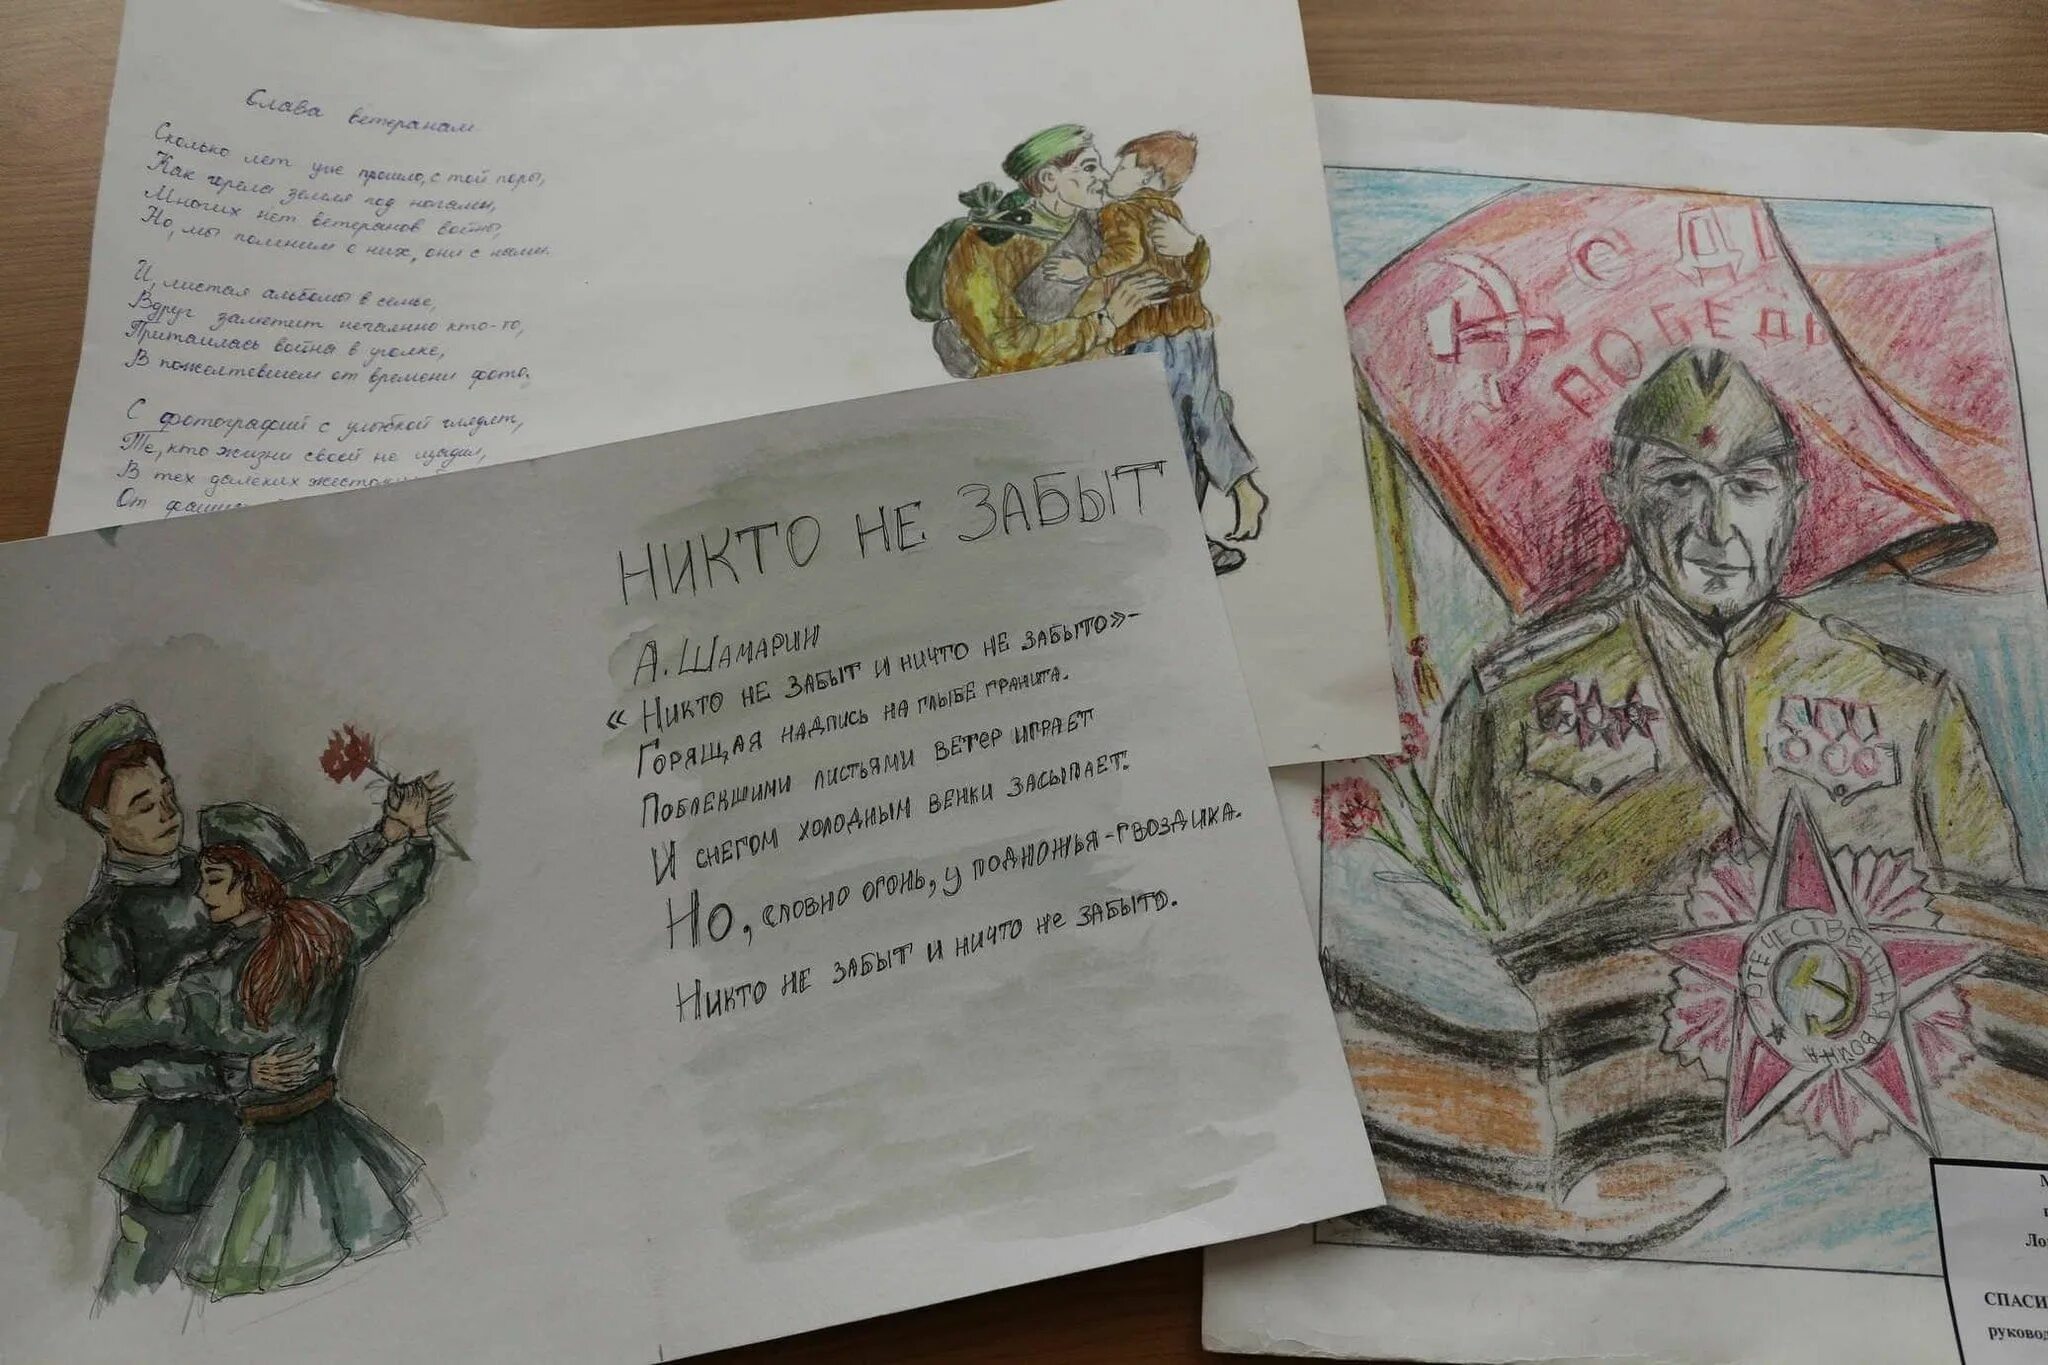 Слава ветеранам
Сколько лет уже прошло, с той поры,
Как горела земля под ногами,
Многих нет ветеранов войны,
Но, мы помним о них, они с нами.
И, листая альбомы в семье,
Вдруг заметит нечаянно кто-то,
Притаилась война в уголке,
В пожелтевшем от времени фото.
С фотографий с улыбкой глядят,
Те, кто жизни своей не щадил,
В тех далёких
От
НИКТО НЕ ЗАБЫТ
А. ШАМАРИН
« НИКТО НЕ ЗАБЫТ И НИЧТО НЕ ЗАБЫТО» -
ГОРЯЩАЯ НАДПИСЬ НА ГЛЫБЕ ГРАНИТА.
ПОБЛЕКШИМИ ЛИСТЬЯМИ ВЕТЕР ИГРАЕТ
И СНЕГОМ ХОЛОДНЫМ ВЕНКИ ЗАСЫПАЕТ.
НО, СЛОВНО ОГОНЬ, У ПОДНОЖЬЯ - ГВОЗДИКА.
НИКТО НЕ ЗАБЫТ И НИЧТО НЕ ЗАБЫТО.
С ДН
ПОБЕДЫ
ОТЕЧЕСТВЕННАЯ
ВОЙНА
СПАСИ
руковод